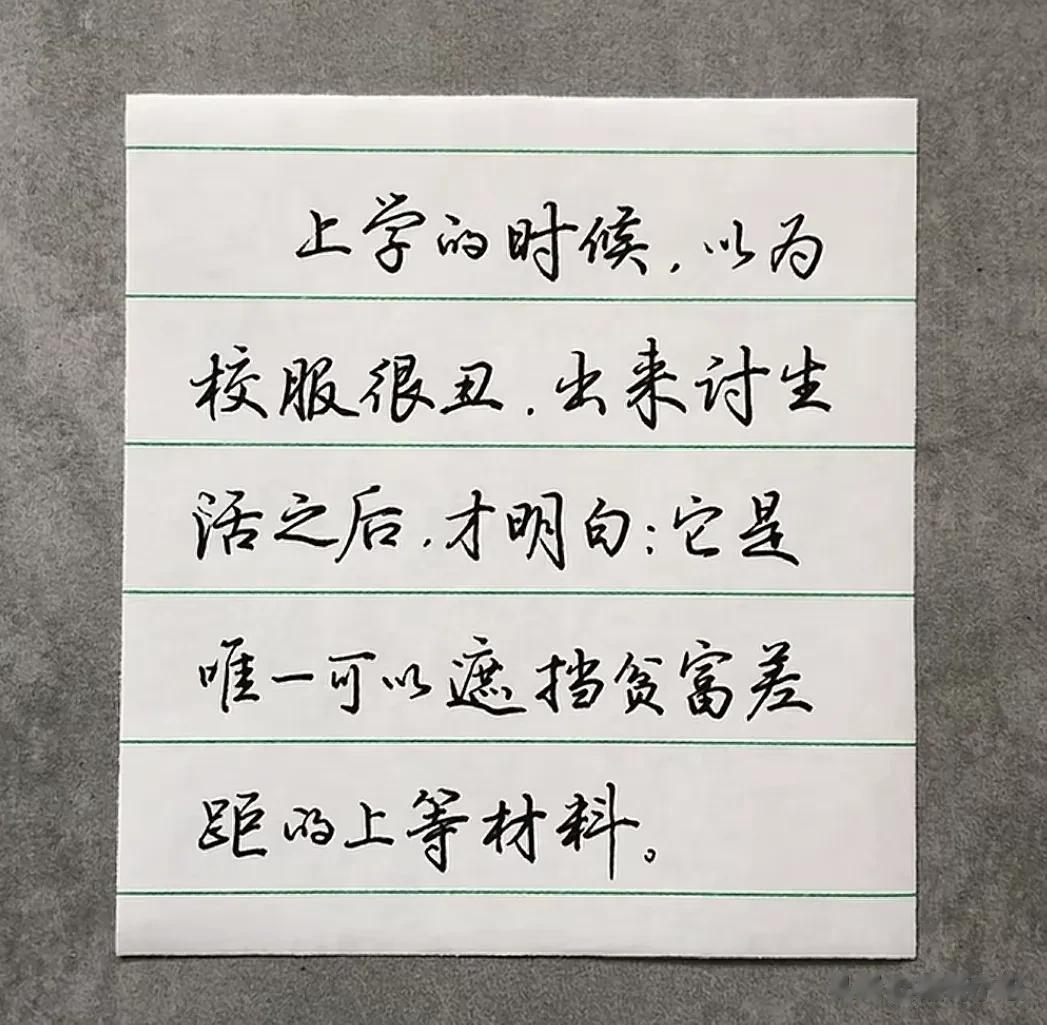 上学的时候,以为
校服很丑,出来讨生
活之后,才明白:它是
唯一可以遮挡贫富差
距的上等材料。